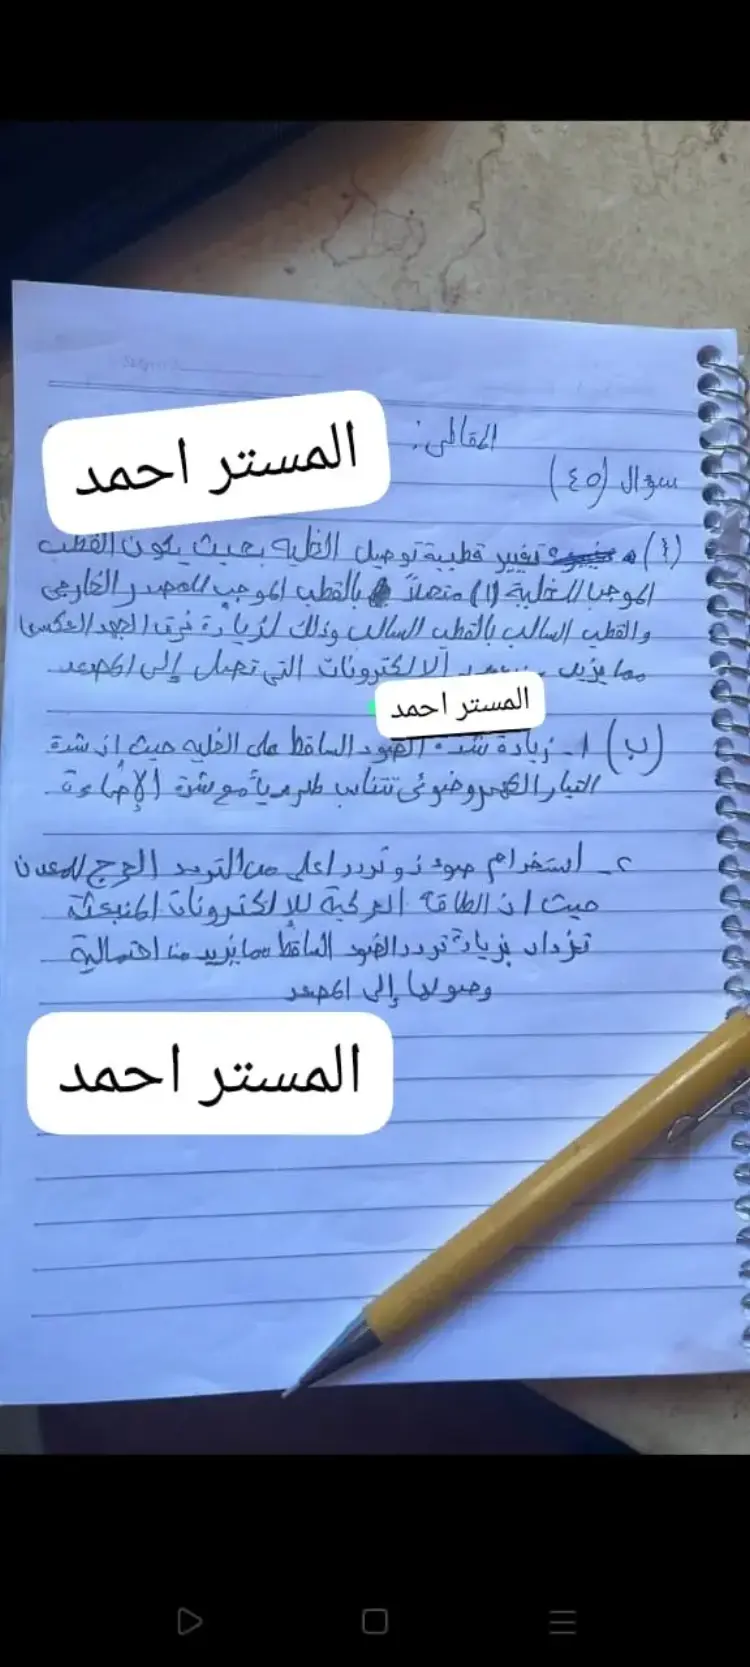 المقالى:
المستر احمد
سؤال (٤٥)
(٤) تغيير قطبية توصيل الخلية بحيث يكون القطب
الموجب للخلية (١) متصلاً بالقطب الموجب للمصدر الخارجى
والقطب السالب بالقطب السالب وذلك لزيادة فرق الجهد العكسى
مما يزيد الالكترونات التى تصل إلى المصعد
المستر احمد
(ب) ١ـ زيادة شدة الضوء الساقط على الخليه حيث ان شدة
التيار الكهروضوئى تتناسب طردياً مع شدة الإضاءة
٢ـ استخدام ضوء ذو تردد اعلى من التردد الحرج للمعدن
حيث ان الطاقة الحركية للإلكترونات المنبعثة
تزداد بزيادة تردد الضوء الساقط مما يزيد من احتمالية
وصولها إلى المصعد
المستر احمد